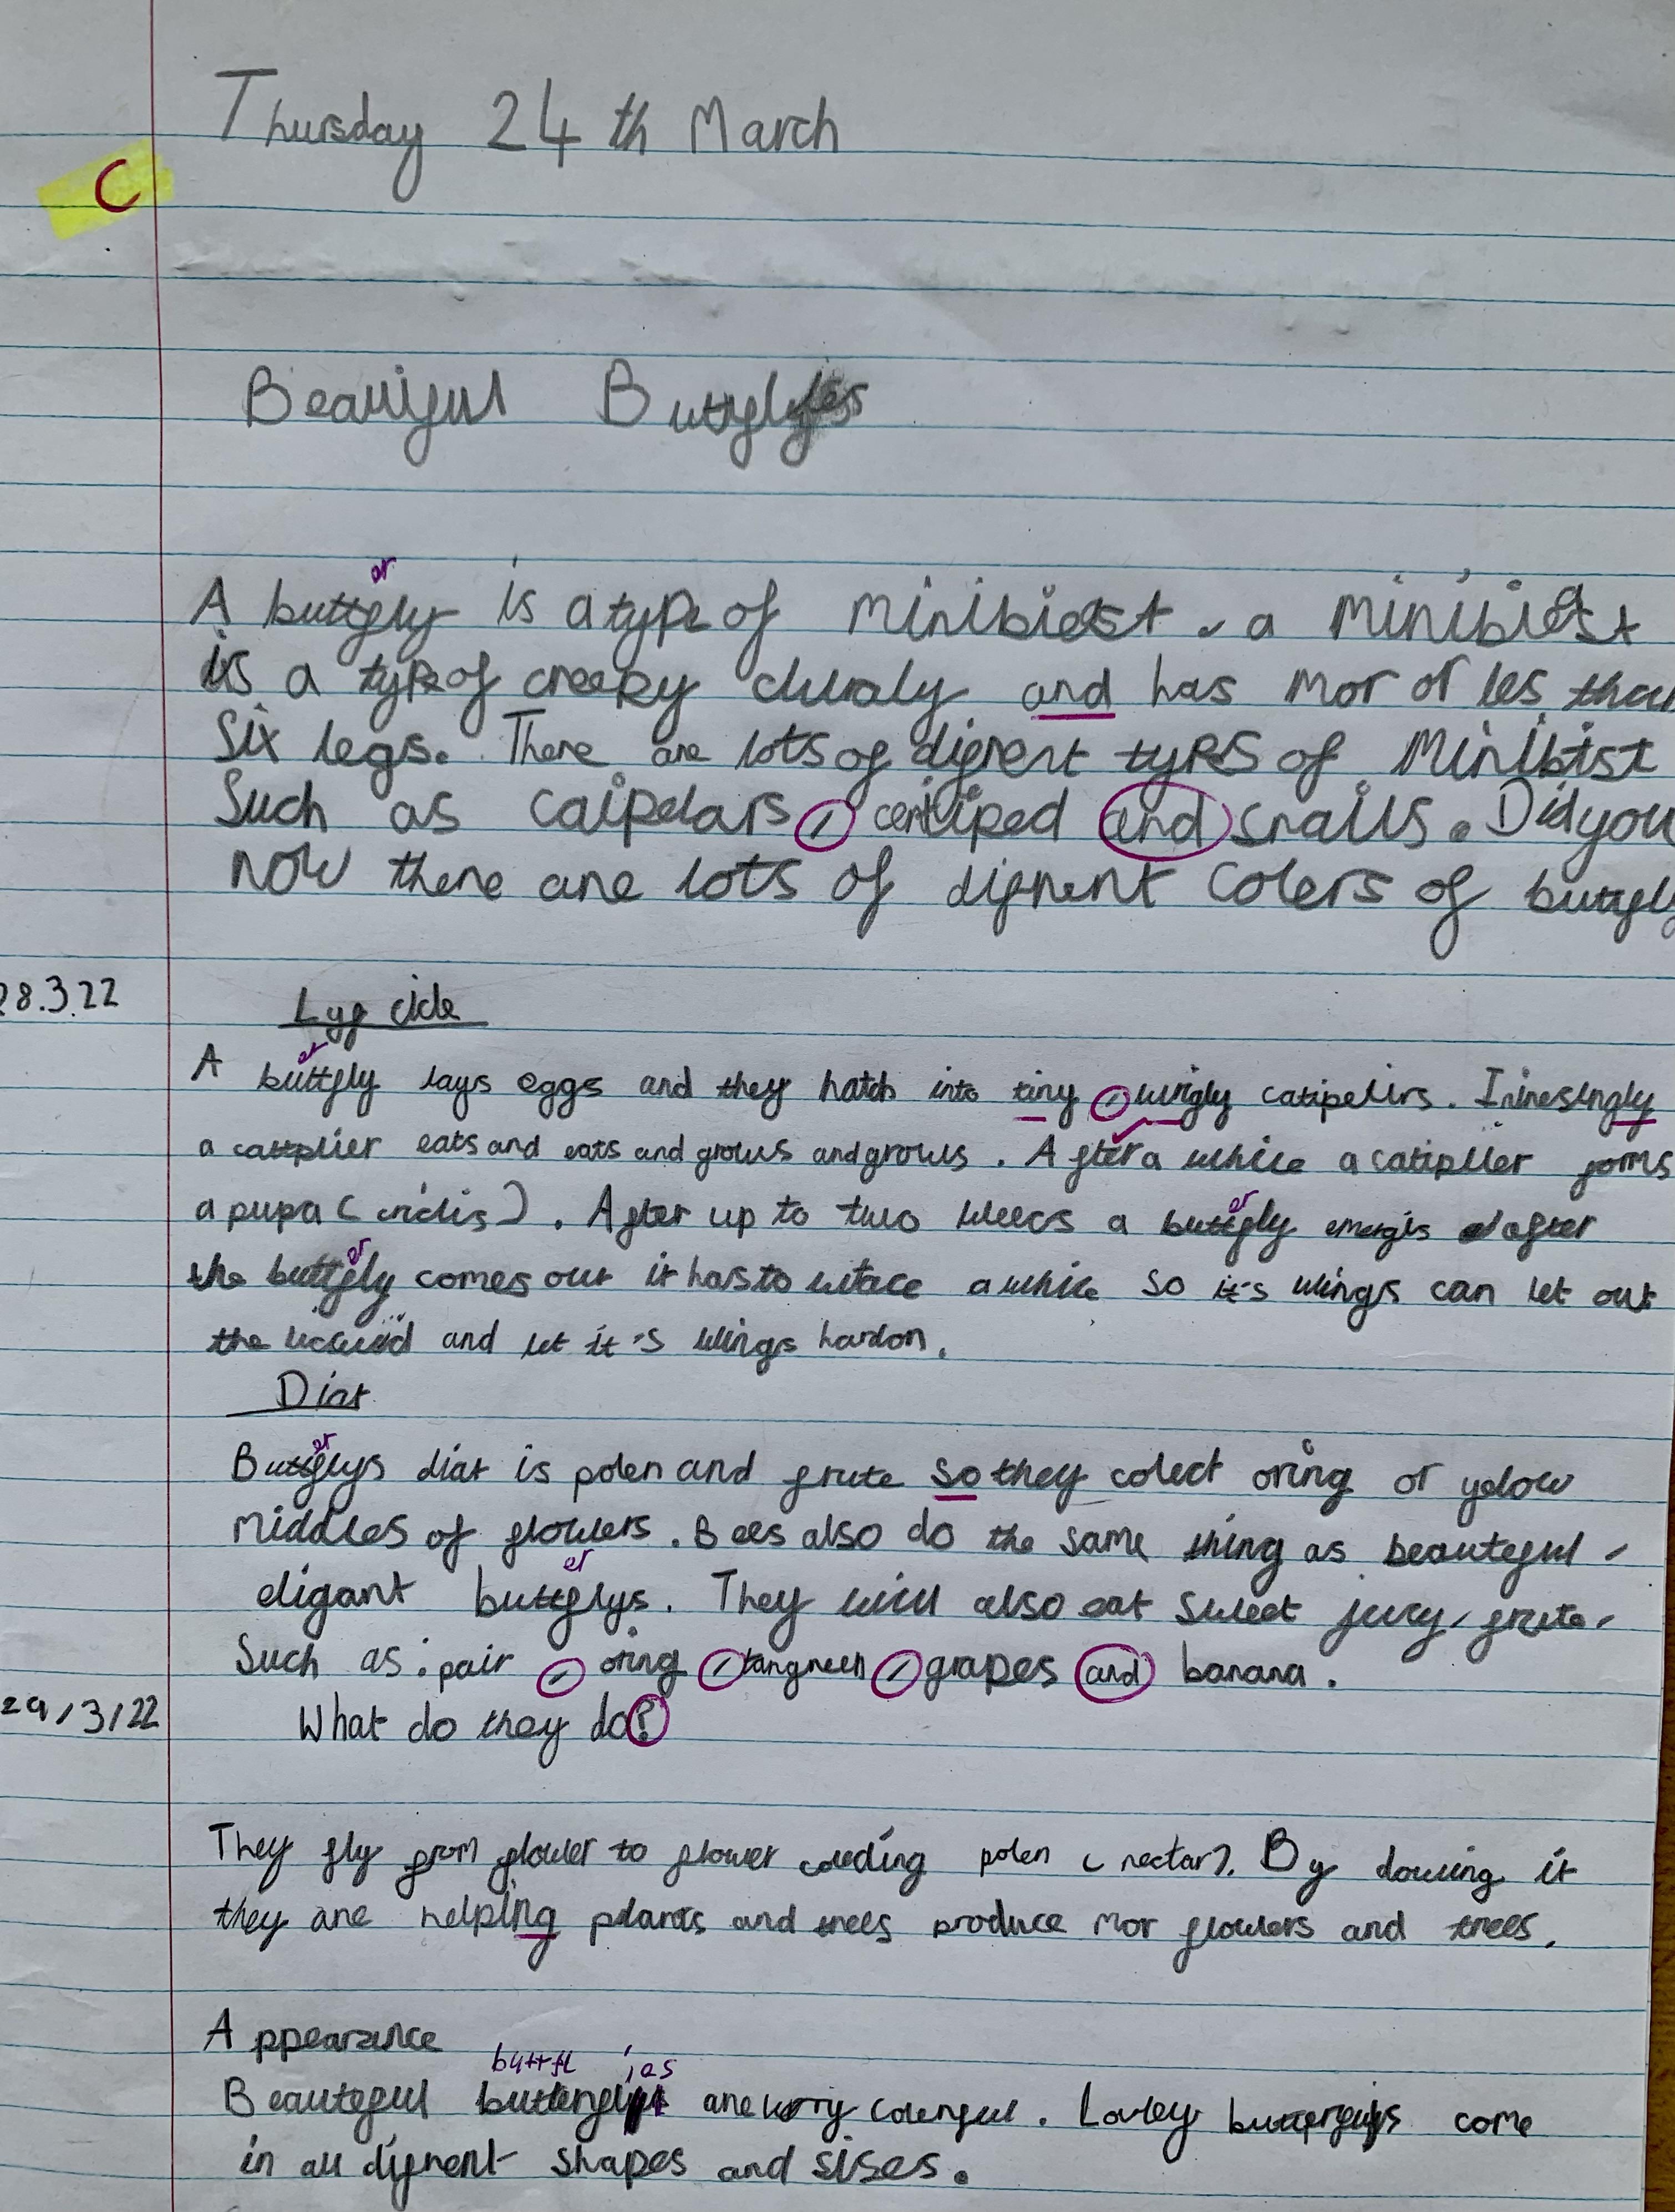 Thursday 24th March
C
Beautiful Butyflyies
er
A buttfly is a type of minibieast. a minibieast
is a type of creepy clwraly and has mor or les than
six legs. There are lots of difrent types of Minibist
Such as caipelars, centiped and snails. Did you
now there are lots of difrent colers of buttfly
28.3.22
Lyf cicle
er
A buttfly lays eggs and they hatch into tiny, wrigly catipelirs. Intresingly
a cattplier eats and eats and grows and grows. After a while a catipller forms
er
a pupa (cridis). After up to two weecs a buttfly emergis after
er
the buttfly comes out it has to wtace a while so it's wings can let out
the and let it's wings hardon.
Diat
er
Buttflys diat is polen and frute so they colect oring or yelow
middles of flowers. Bees also do the same thing as beauteful,
er
eligant buttflys. They will also eat sweet jucy, frute,
Such as: pair, oring, tangreen, grapes and banana.
29/3/22
What do they do?
They fly from flower to flower colecting polen (nectar). By dowing it
they are helping plants and trees produce mor flowers and trees.
Appearance
buttfl ies
Beauteful are very colerful. Lovley come
in all difrent shapes and sises.